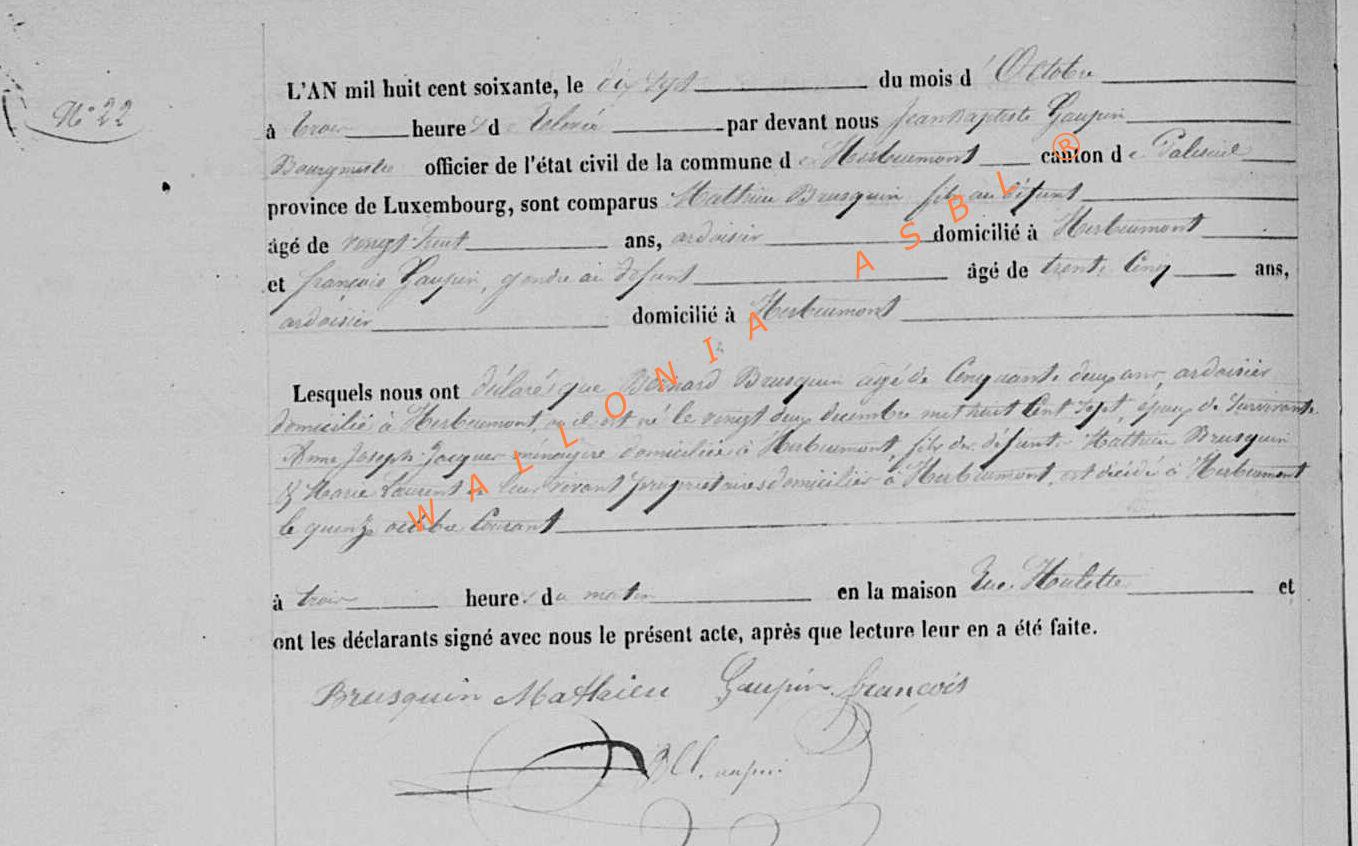 N° 22
L'AN mil huit cent soixante, le dix sept du mois d' Octobre
à trois heures de relevée par devant nous Jean Baptiste Gaupin
Bourgmestre officier de l'état civil de la commune de Herbeumont canton de Paliseul
province de Luxembourg, sont comparus Mathieu Brusquin fils au défunt
âgé de vingt huit ans, ardoisier domicilié à Herbeumont
et françois Gaupin, gendre au défunt âgé de trente cinq ans,
ardoisier domicilié à Herbeumont
Lesquels nous ont déclarés que Bernard Brusquin agé de Cinquante deux ans, ardoisier
domicilié à Herbeumont où il est né le vingt deux decembre mil huit Cent Sept, époux de Survivante
Anne Joseph Jacques ménagère domiciliée à Herbeumont, fils des défunts Mathieu Brusquin
& Marie Laurent leur vivant propriétaires domiciliés à Herbeumont, est décédé à Herbeumont
le quinze octobre Courant
à trois heures du matin en la maison Rue Houlette et
ont les déclarants signé avec nous le présent acte, après que lecture leur en a été faite.
Brusquin Mathieu Gaupin françois
WALLONIA ASBL ®